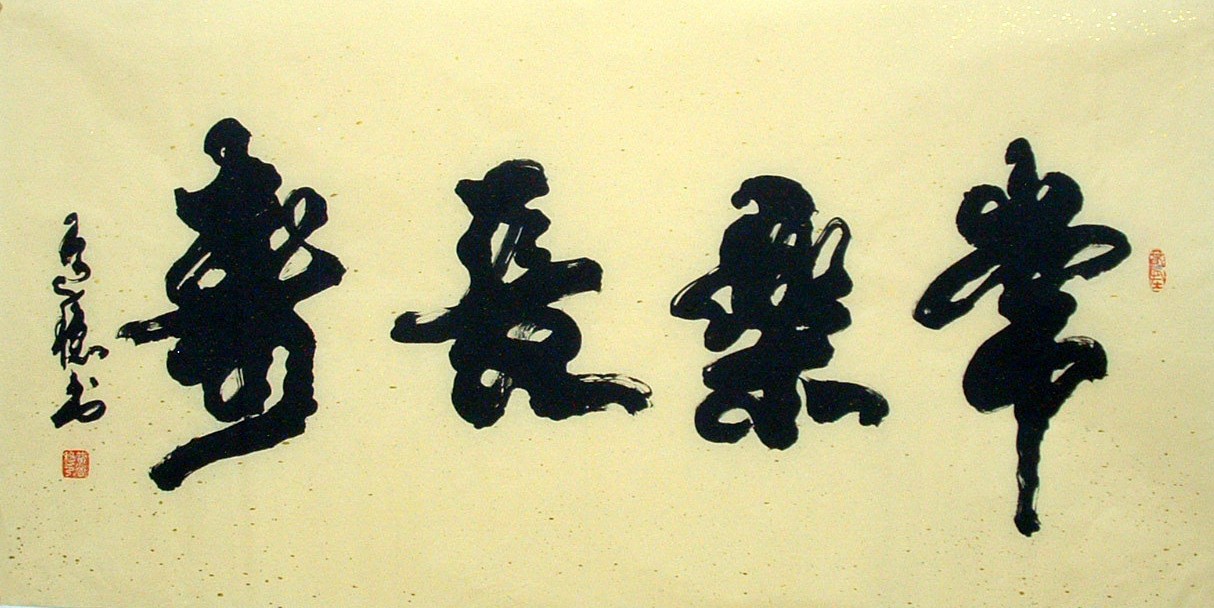 常樂長壽